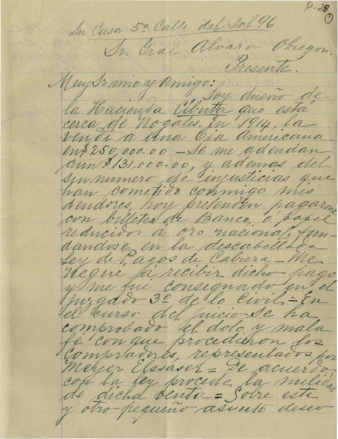 P-29
Su Casa 5ª Calle del Sol 96
Sr. Gral Alvaro Obregon.
Presente.
Muy Sr. mio y Amigo:
Soy dueño de
la Hacienda Cibuta que está
cerca de Nogales, en 1914, la
vendí a Una Cia Americana
en $250,000.00 - Se me adeudan
aun $131.000.00, y ademas del
sin numero de injusticias que
han cometido conmigo mis
deudores, hoy pretenden pagarme
con billetes de Banco, ó papel
reducidor a oro nacional, fun-
dandose en la descabellada
Ley de Pagos de Cabrera - Me
negue a recibir dicho pago
y me fue consignado en el
Juzgado 3º de lo Civil - En
el curso del juicio se ha
comprobado el dolo y mala
fé con que procedieron los
compradores, representados por
Meyer Elsasser - De acuerdo
con la ley procede la
de dicha venta - Sobre este
y otro pequeño asunto deseo